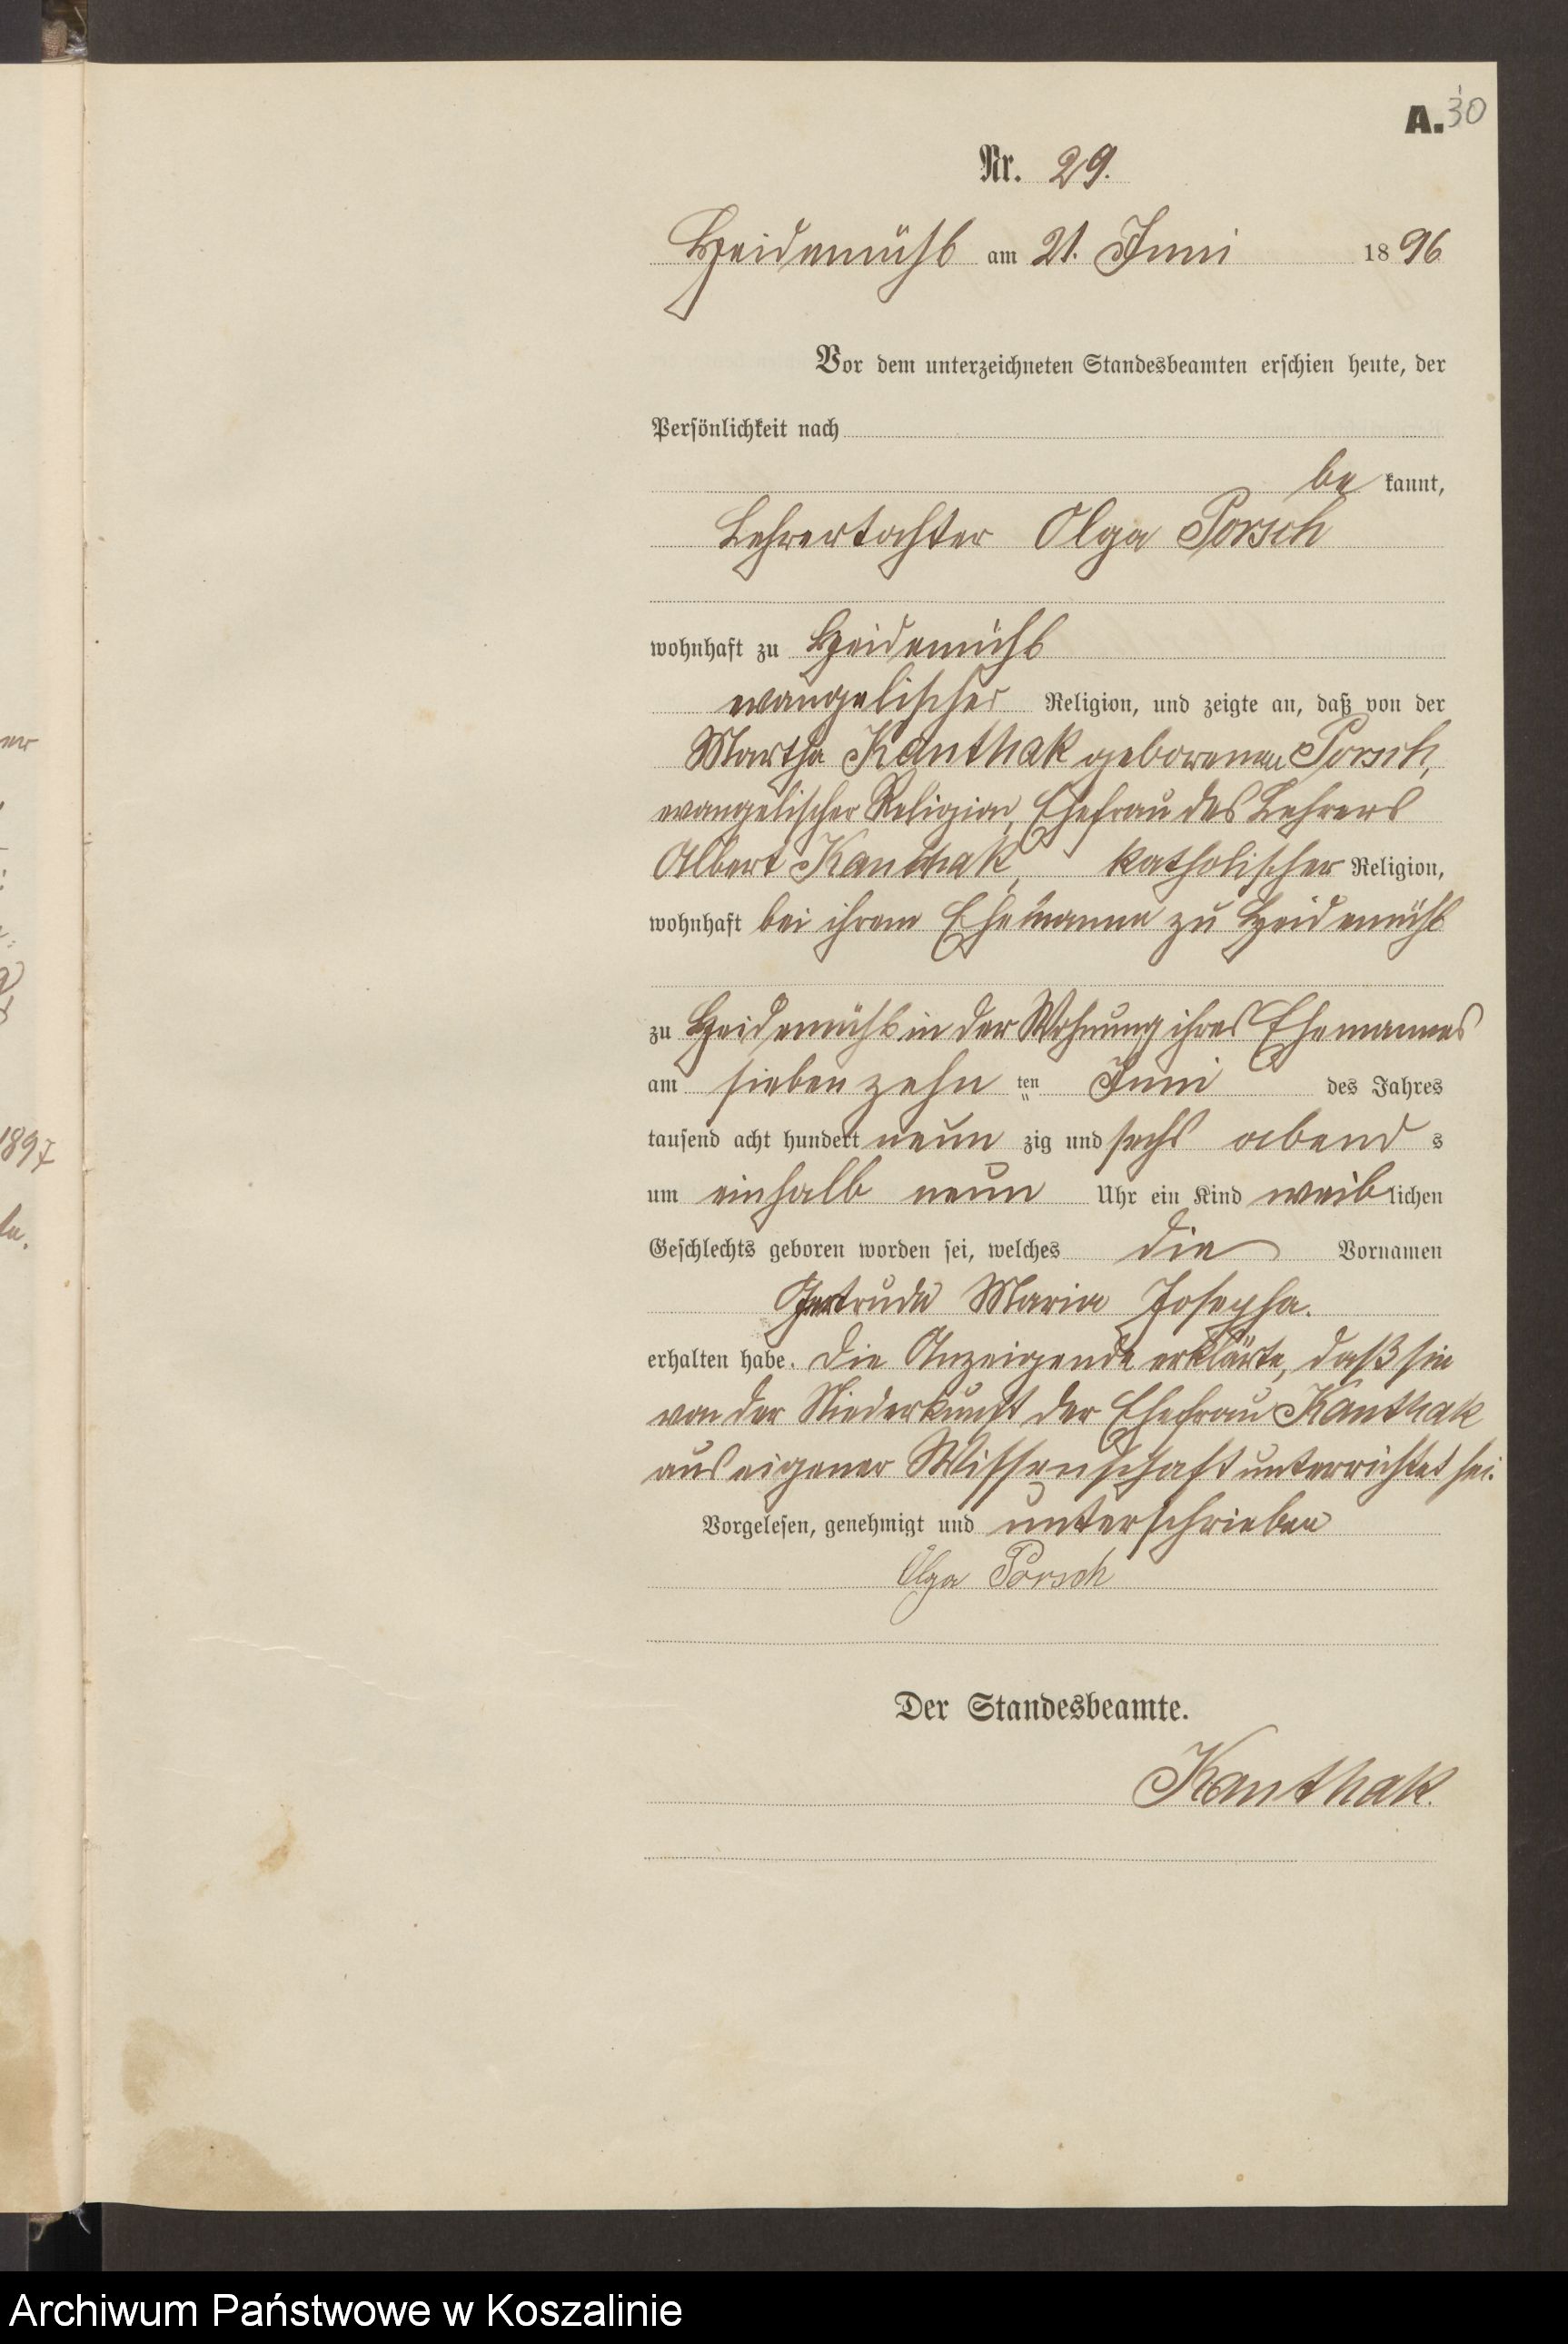 A. 30
Nr. 29.
Heidemühl am 21. Juni 1896
Vor dem unterzeichneten Standesbeamten erschien heute, der
Persönlichkeit nach
be kannt,
Lehrertochter Olga Porsch
wohnhaft zu Heidemühl
evangelischer Religion, und zeigte an, daß von der
Martha Kanthak geborenen Porsch,
evangelischer Religion, Ehefrau des Lehrers
Albert Kanthak, katholischer Religion,
wohnhaft bei ihrem Ehemanne zu Heidemühl
zu Heidemühl in der Wohnung ihres Ehemannes
am siebenzehn ten Juni des Jahres
tausend acht hundert neun zig und sechs abend s
um einhalb neun Uhr ein Kind weiblichen
Geschlechts geboren worden sei, welches die Vornamen
Gertrude Maria Josepha.
erhalten habe. Die Anzeigende erklärte, daß sie
von der Niederkunft der Ehefrau Kanthak
aus eigener Wissenschaft unterrichtet sei.
Vorgelesen, genehmigt und unterschrieben
Olga Porsch
Der Standesbeamte.
Kanthak.
1897
Archiwum Państwowe w Koszalinie